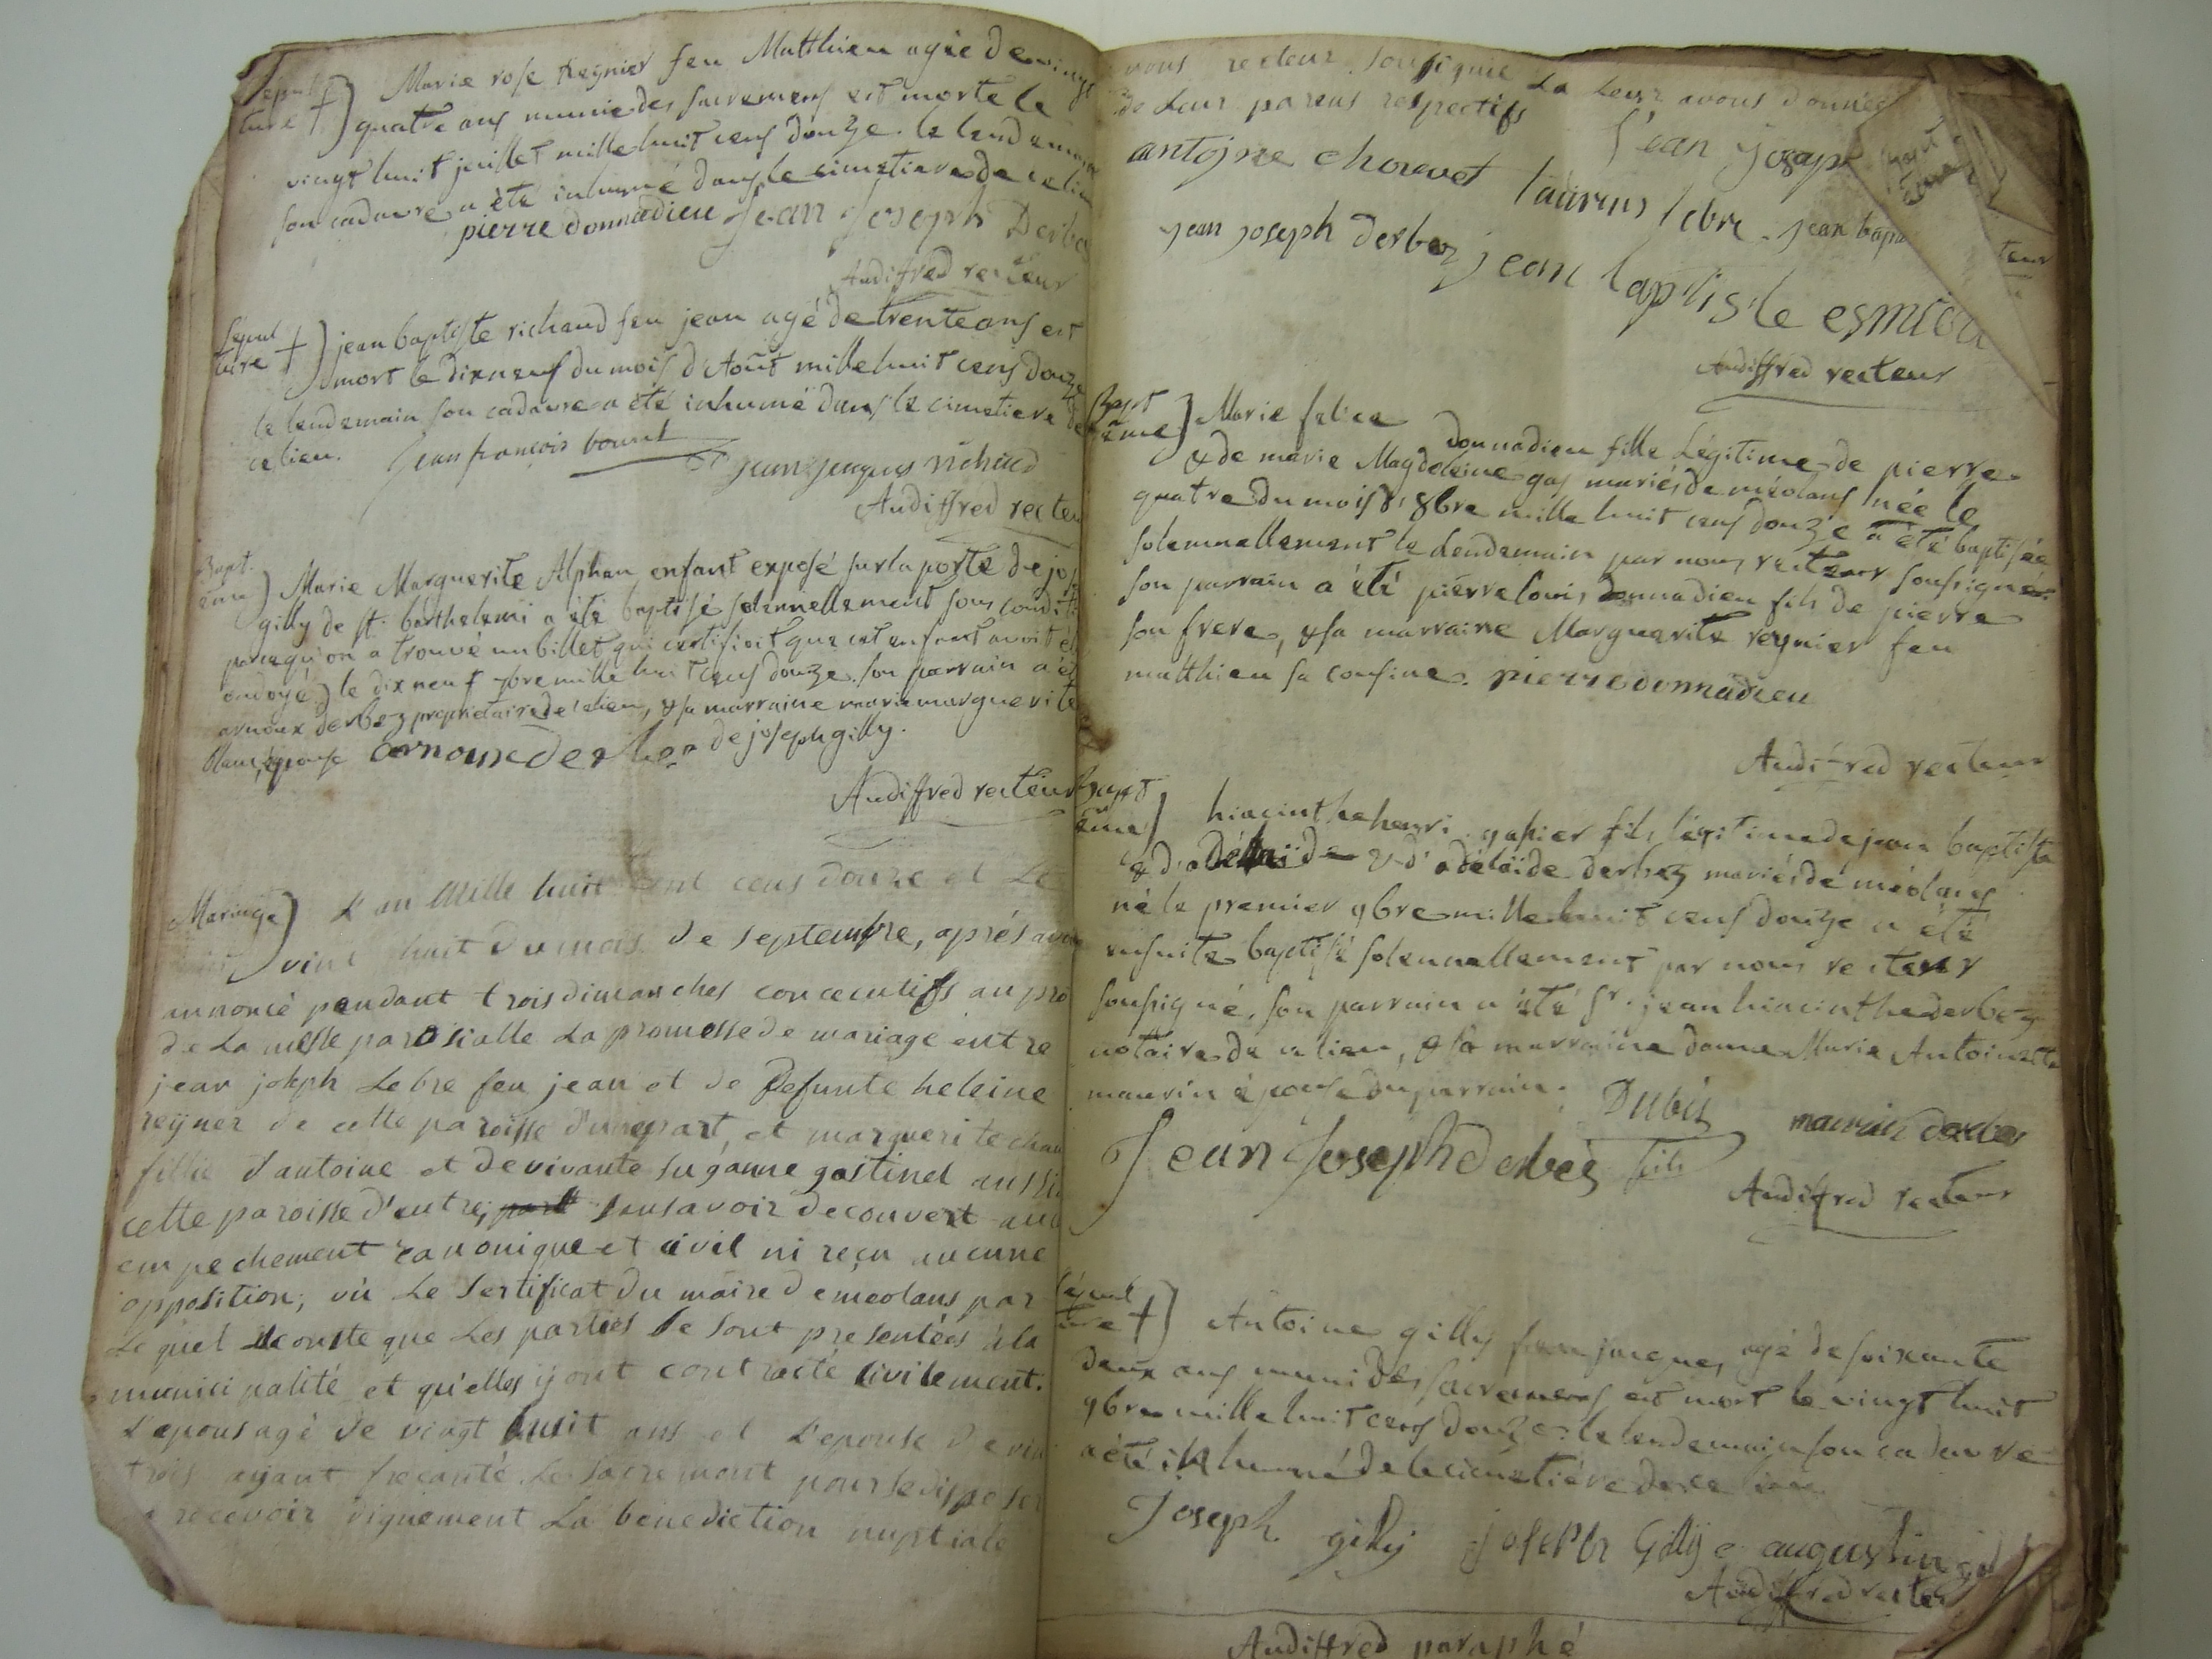 Sepul
ture † ) Marie rose Reynier feu Matthieu agée de vingt
quatre ans munie des sacremens est morte le
vingt huit juillet mille huit cens douze. le lendemain
son cadavre a été inhumé dans le cimetiere de ce lieu
pierre donnadieu Jean Joseph Derbe
Audiffred recteur
Sepul
ture † ) jean baptiste richaud feu jean agé de trente ans est
mort le dixneuf du mois d'Aout mille huit cens douze
le lendemain son cadavre a été inhumé dans le cimetiere de
ce lieu. Jean françois
jean jaques richaud
Audiffred recteu
Bapt.
eme ) Marie Marguerite Alphan enfant exposé sur la porte de jos
gilly de st. barthelemi a été baptisé solennellement sous condit
parcequ'on a trouvé un billet qui certifioit que cet enfant avoit et
ondoyé) le dix neuf 7bre mille huit cens douze. son parrain a ét
arnoux derbez proprietaire de ce lieu, & sa marraine marie marguerite
blanc, epouse de joseph gilly.
arnoux derbez
Audiffred recteur
Mariage ) L'an Mille huit cent cens douze et Le
vint huit du mois de septembre, aprés avoir
annoncé pendant trois dimanches concecutifs au pro
de La messe paroisialle La promesse de mariage entre
jean joseph Lebre feu jean et de Defunte heleine
reyner de cette paroisse d'une part, et marguerite chau
fillie d'antoine et de vivante suzanne gastinel aussi
cette paroisse d'autre, part sans avoir decouvert auc
empechement canonique et civil ni reçu aucune
opposition; vù Le sertificat du maire de meolans par
Le quel il conste que Les parties se sont presentées à la
municipalité et qu'elles ÿ ont contracté civilement.
L'epous agé de vingt huit ans et L'epouse de vin
trois aÿant frecanté Le sacrement pour se disposer
a recevoir dignement La benediction nuptiale
nous recteur soussigné La Leur avons donnée
de Leur parens respectifs
Jean Josaph
antojne chouvet laurens lebre jean bapti
jean joseph derbez jean baptiste esmieu
Audiffred recteur
Bapt
eme ) Marie felice donnadieu fille Légitime de pierre
& de marie Magdeleine gas mariés de méolans née le
quatre du mois d'8bre mille huit cens douze a été baptisée
solemnellement le lendemain par nous recteur soussigné.
son parrain a été pierre louis donnadieu fils de pierre
son frere, & sa marraine Marguerite reynier feu
matthieu sa cousine. pierre donnadieu
Audiffred recteur
Bapt
eme ) hiacinthe henri gassier fils légitime de jean baptiste
& d'adélaïde & d'adélaïde derbez mariés de méolans
né le premier 9bre mille huit cens douze a été
ensuite baptisé solennellement par nous recteur
soussigné. son parrain a été Sr. jean hiacinthe derbez
notaire de ce lieu, & sa marraine dame Marie Antoinette
maurin épouse du parrain. maurin derbez
Jean Joseph derbes fils
Audiffred recteur
Sépul
ture † ) Antoine gilly feu jacques, agé de soixante
deux ans muni des sacremens est mort le vingt huit
9bre mille huit cens douze. le lendemain son cadavre
a été inhumé de le cimetiére de ce lieu
Joseph gilly joseph Gilly augustin gil
Audiffred recteur
Audiffred paraphé